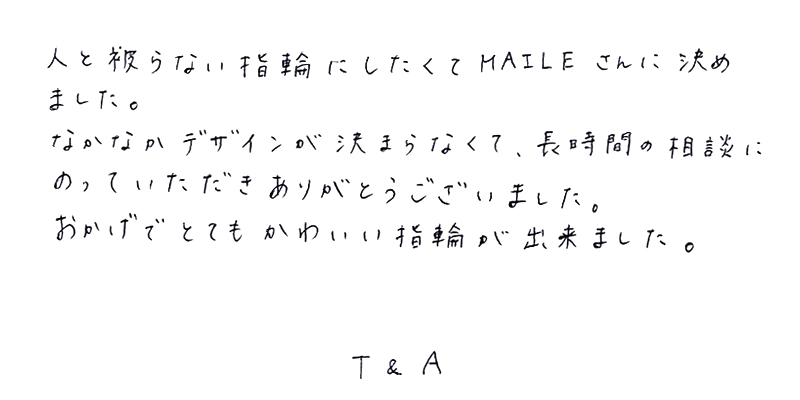 人と被らない指輪にしたくてMAILEさんに決め
ました。
なかなかデザインが決まらなくて、長時間の相談に
のっていただきありがとうございました。
おかげでとてもかわいい指輪が出来ました。
T & A